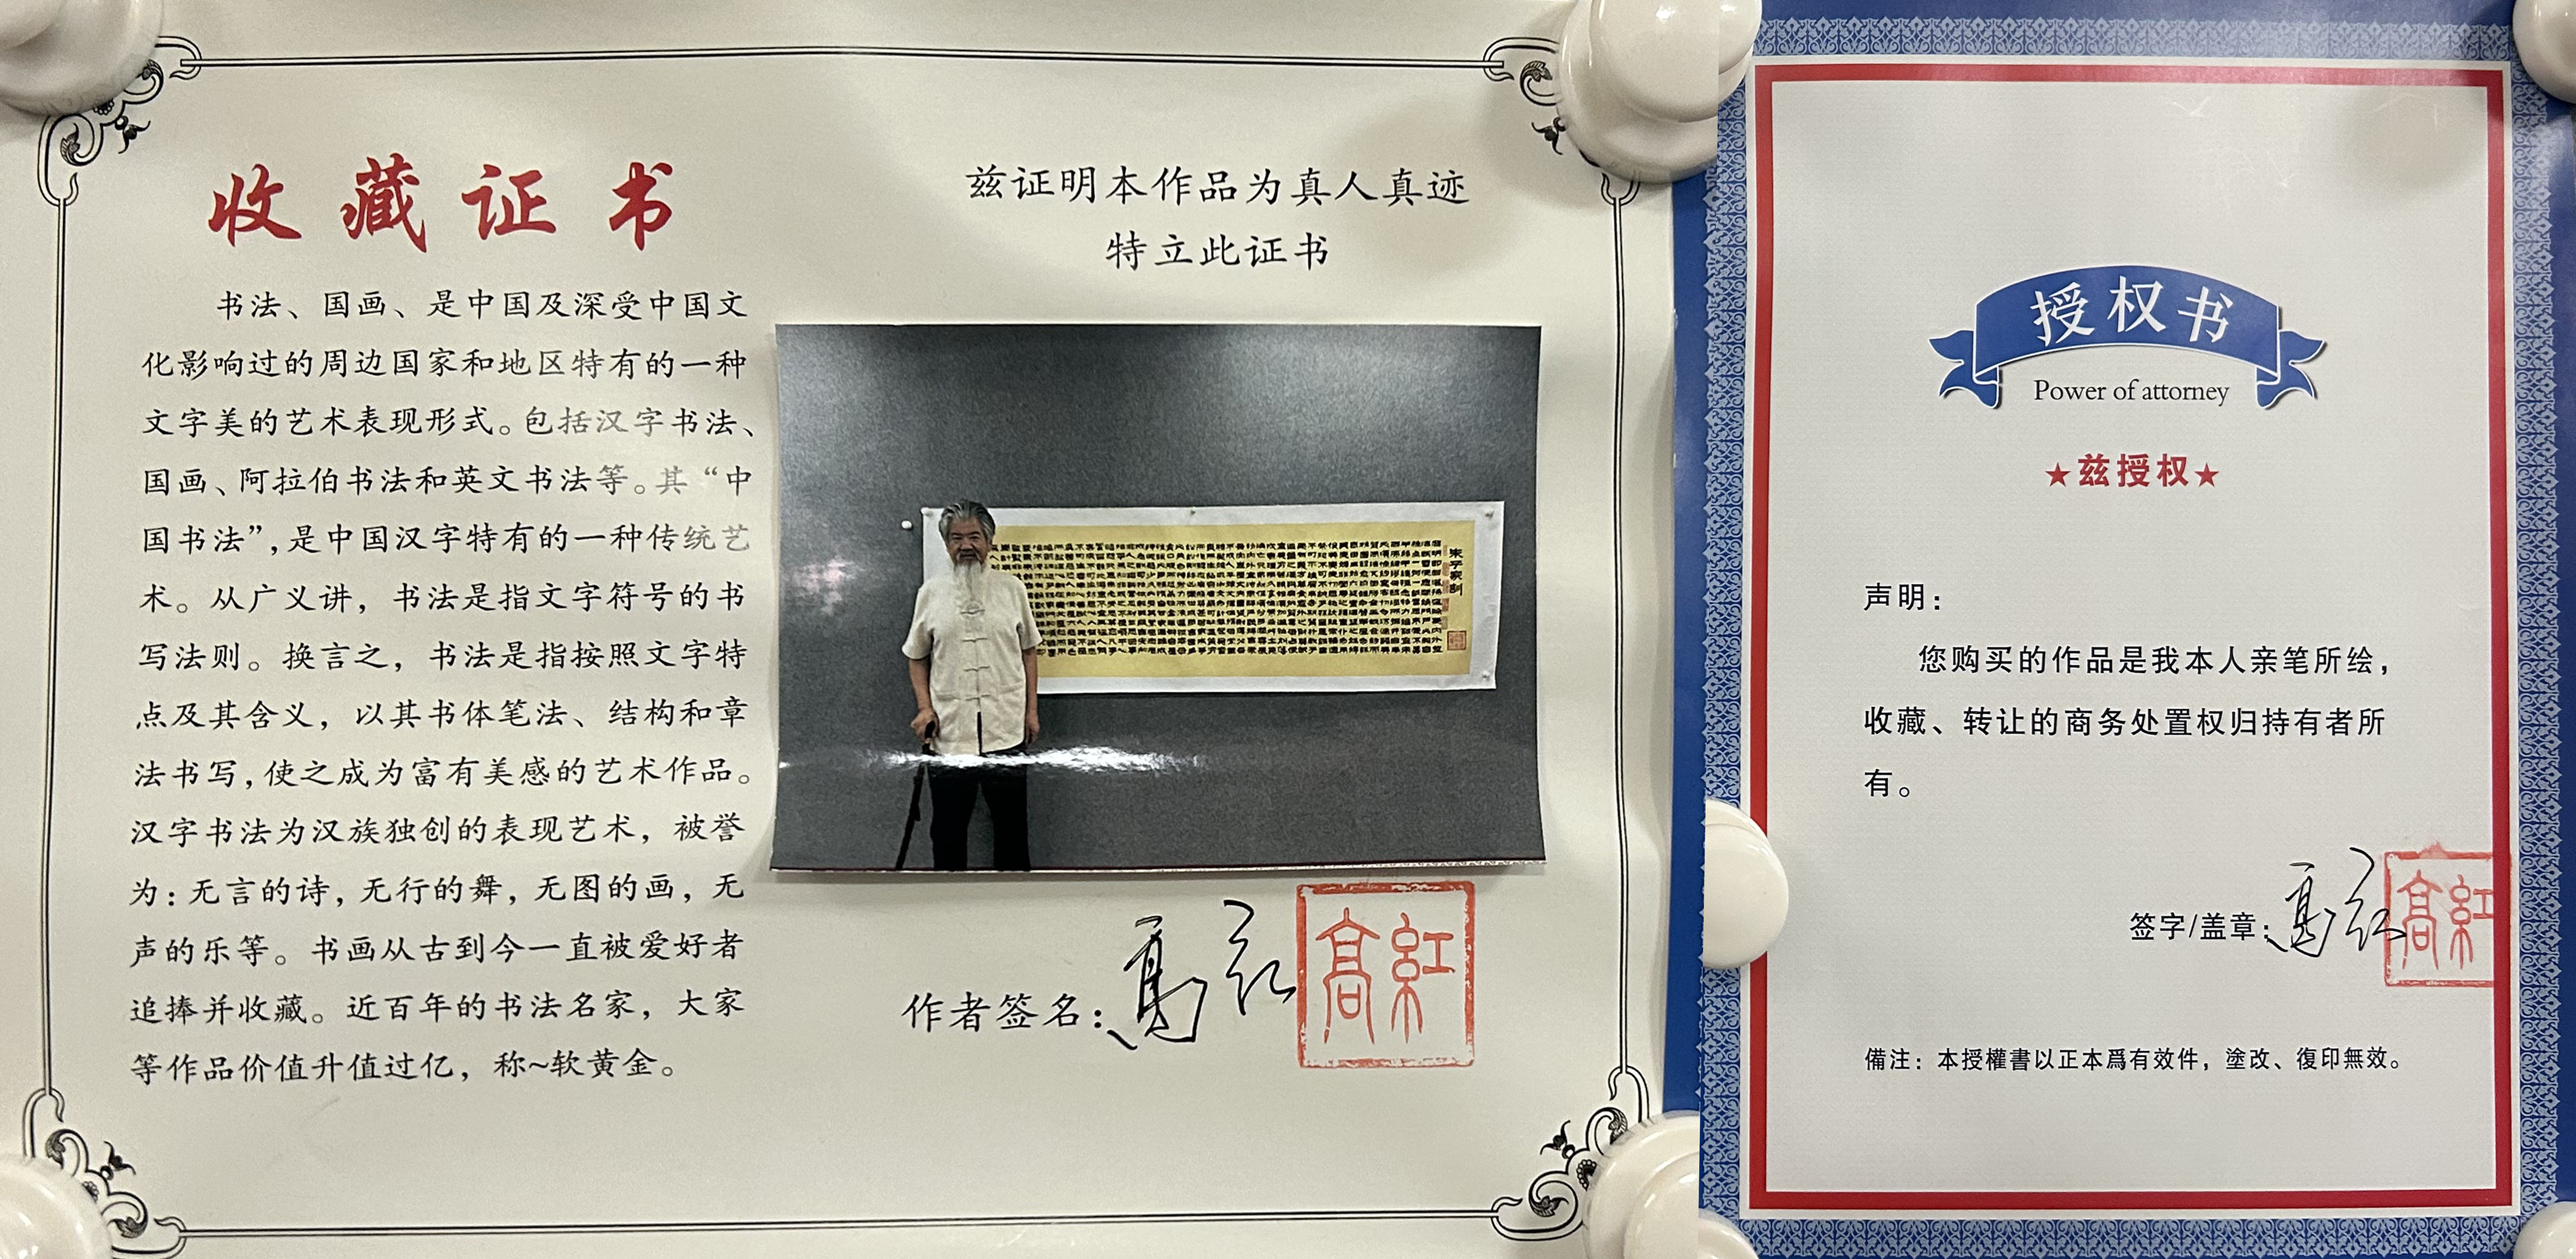 收藏证书
书法、国画、是中国及深受中国文
化影响过的周边国家和地区特有的一种
文字美的艺术表现形式。包括汉字书法、
国画、阿拉伯书法和英文书法等。其“中
国书法”，是中国汉字特有的一种传统艺
术。从广义讲，书法是指文字符号的书
写法则。换言之，书法是指按照文字特
点及其含义，以其书体笔法、结构和章
法书写，使之成为富有美感的艺术作品。
汉字书法为汉族独创的表现艺术，被誉
为：无言的诗，无行的舞，无图的画，无
声的乐等。书画从古到今一直被爱好者
追捧并收藏。近百年的书法名家，大家
等作品价值升值过亿，称~软黄金。
兹证明本作品为真人真迹
特立此证书
朱子家训
作者签名：高红
高紅
授权书
Power of attorney
★兹授权★
声明：
您购买的作品是我本人亲笔所绘，
收藏、转让的商务处置权归持有者所
有。
签字/盖章：高红
高紅
備注：本授權書以正本爲有效件，塗改、復印無效。